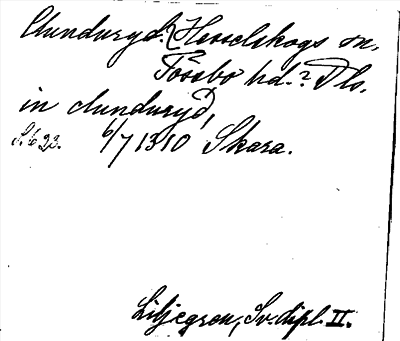 Clunduryd? (Hesselskogs sn,
Tössbo hd.? Dls.
in clunduryd,
S. 623. 6/7 1310 Skara.
Liljegren, Sv. dipl. II.